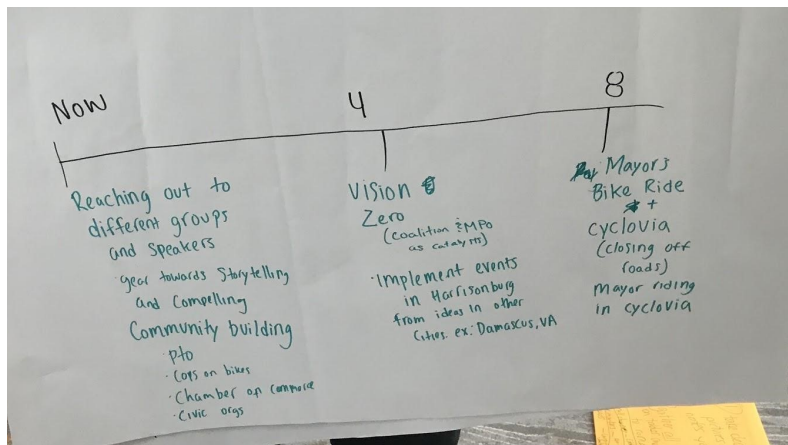 Now
4
8
Reaching out to
different groups
and Speakers
gear towards Storytelling
and Compelling
Community building
· pto
· Cops on bikes
· Chamber of commerce
· Civic orgs
Vision
Zero
(coalition & MPO
as catalysts)
· Implement events
in Harrisonburg
from ideas in other
Cities. ex: Damascus, VA
Mayors
Bike Ride
+
cyclovia
(closing off
roads)
Mayor riding
in cyclovia